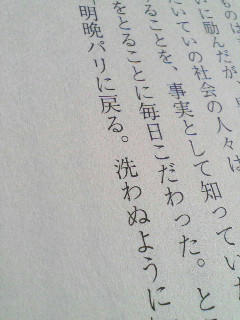 いに励んだが、
たいていの社会の人々は
ることを、事実として知ってい
をとることに毎日こだわった。と
明晩パリに戻る。洗わぬように